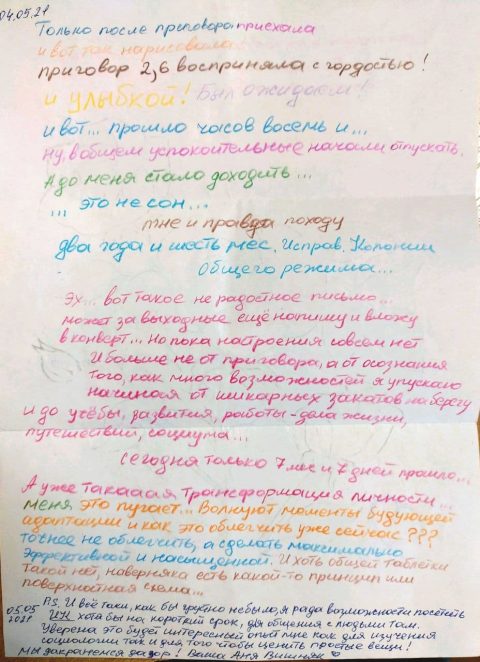 04.05.21
Только после приговора приехала
и вот так нарисовала!
приговор 2,6 восприняла с гордостью!
и улыбкой! Был ожидаем!!
и вот... прошло часов восемь и...
Ну, в общем успокоительные начали отпускать.
А до меня стало доходить...
... это не сон...
мне и правда походу
два года и шесть мес. Исправ. Колонии
Общего режима...
Эх... вот такое не радостное письмо...
может за выходные ещё напишу и вложу
в конверт... Но пока настроения совсем нет
И больше не от приговора, а от осознания
того, как много возможностей я упускаю
начиная от шикарных закатов на берегу
и до учёбы, развития, работы - дела жизни,
путешествий, социума...
Сегодня только 7 мес и 7 дней прошло...
А уже такаааая трансформация личности...
меня это пугает... Волнуют моменты будующей
адаптации и как это облегчить уже сейчас ???
точнее не облегчить, а сделать максимально
эффективной и насыщенной. И хоть общей таблетки
такой нет, наверняка есть какой-то принцип или
поверхностная схема...
05.05 2021
P.S. И всё таки, как бы грустно не было, я рада возможности посетить
ИК хотя бы на короткий срок, для общения с людьми там.
Уверена это будет интересный опыт мне как для изучения
социологии так и для того чтобы ценить простые вещи!
Мы Ваша Аня